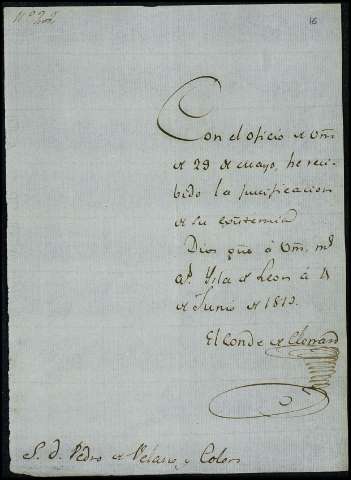 16
Con el oficio de Vm.
de 29 de mayo, he reci-
bido la purificacion
de su
Dios gũe á Vm. m.s
a.s Ysla de Leon á 4
de Junio de 1813.
El Conde de
S. D. Pedro de Velasco y Colon